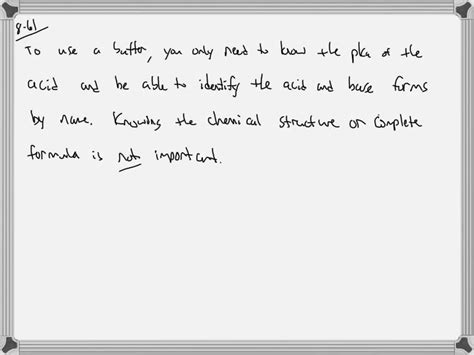 8-61
To use a buffer, you only need to know the pka of the
acid and be able to identify the acid and base forms
by name. Knowing the chemical structure or complete
formula is not important.